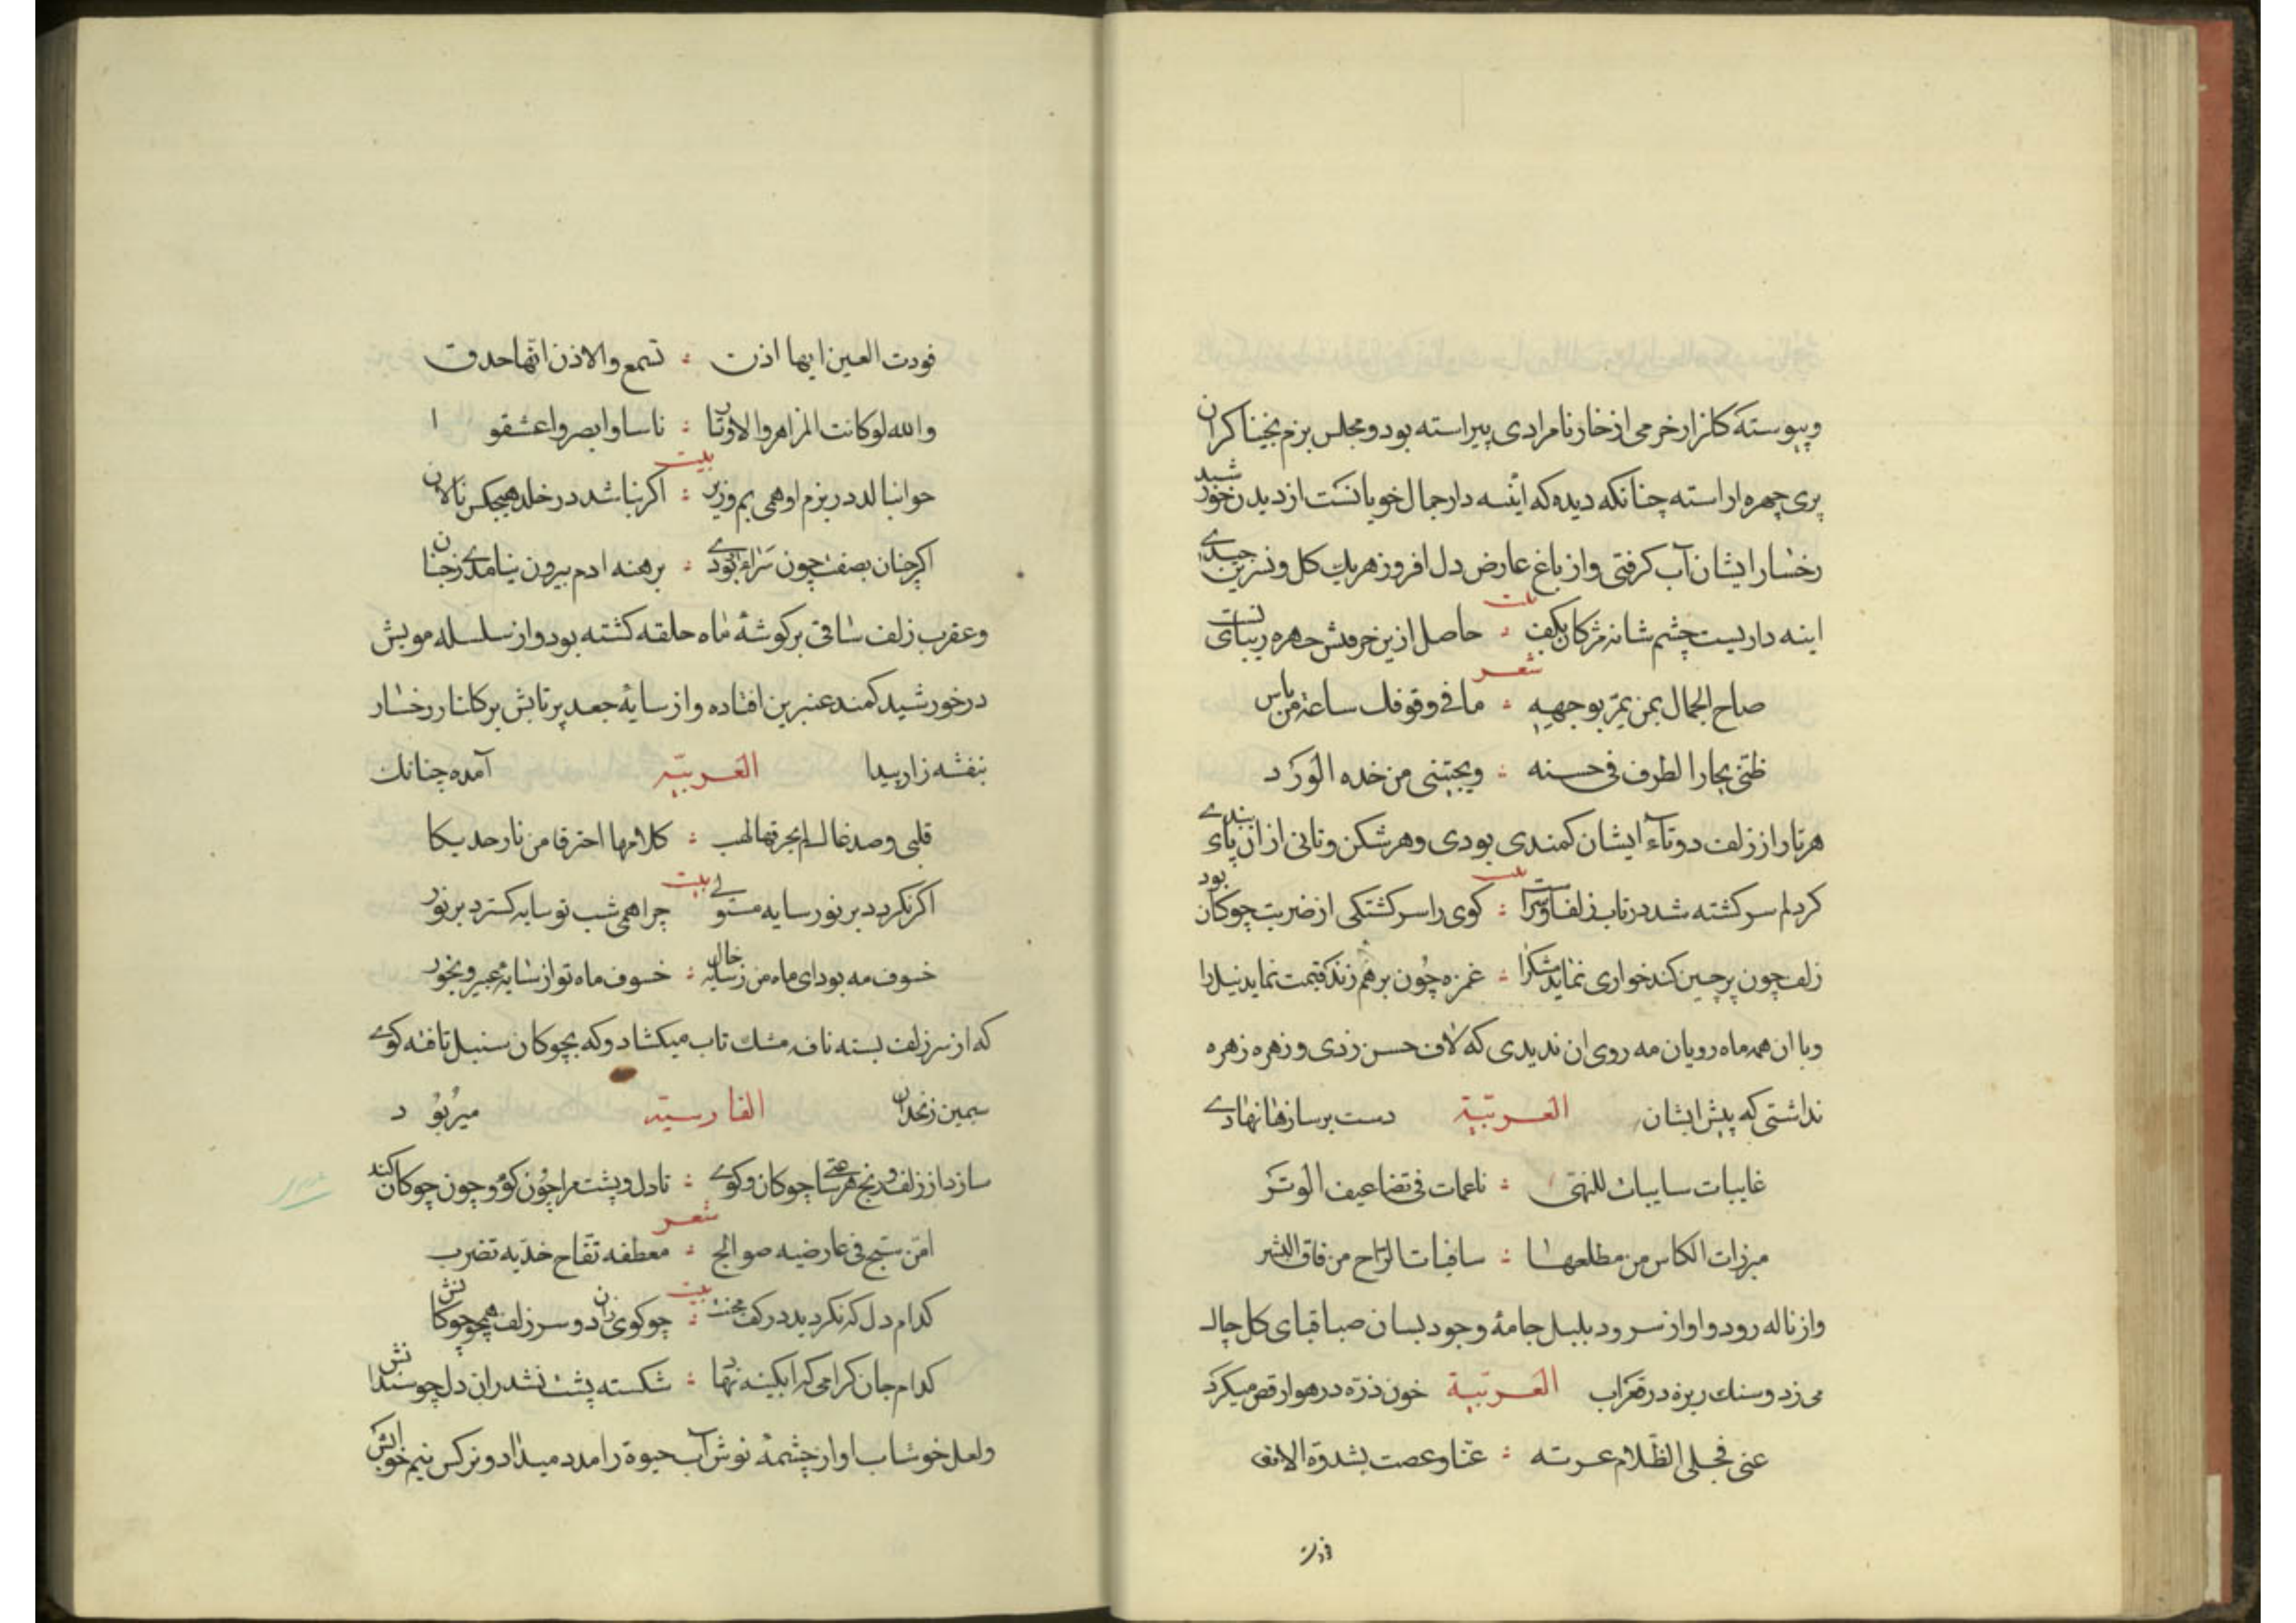 وپیوسته کلزار خرمی از خار نامرادی پیراسته بود ومجلس بزم بخیناکران
پری چهره اراسته چنانکه دیده که اینه دار جمال خوبانست از دیدن خورشید
رخسار ایشان آب کرفتی واز باغ عارض دل افروز هریك کل ونسرین چیدی
بیت
اینه داریست چشم شانه مژکان بکف ؛ حاصل ازین حرفتش چهره زیبای تست
شعر
صاح الجمال بمن یمر بوجهه ؛ ما فی وقوفك ساعة من باس
ظتی بحار الطرف فی حسنه ؛ ویجتنی من خده الورد
هر تار از زلف دوتاء ایشان کمندی بودی وهر شکن وتابی از ان پای بندی
بیت
کر دلم سرکشته شد در تاب زلف اوسراست ؛ کوی را سرکشتکی از ضربت چوکان بود
زلف چون پرچین کند خواری نماید مشکرا ؛ غمزه چون برهم زند قیمت نماید نیل را
وبا ان همه ماه رویان مه روی ان ندیدی که لاف حسن زدی وزهره زهره
نداشتی که پیش ایشان العربیة دست بر سازها نهادی
غایبات سایبات للنهی ؛ ناعمات فی تضاعیف الوتر
مبرزات الکاس من مطلعها ؛ ساقیات الراح من فاق البشر
واز ناله رود واواز سرود بلبل جامهٔ وجود بسان صبا قبای کل چاك
می زد وسنك ریزه در قعر آب العربیة خون ذره در هوا رقص میکرد
عنی فجلی الظلام عرته ؛ غنا وعصت بشدوة الافق
فودت
فودت العین ایها اذن ؛ تسمع والاذن انها حدق
والله لو کانت المزاهر والاوتار ؛ ناسا وابصروا عشقوا
بیت
حوا نبالد در بزم او همی بم وزیر ؛ اکر نباشد در خلد هیچکس نالان
اکر جنان بصفت چون سرای بودی ؛ برهنه ادم بیرون نیامدی زجنان
وعقرب زلف ساقی بر کوشهٔ ماه حلقه کشته بود واز سلسله مویش
در خورشید کمند عنبرین افتاده واز سایهٔ جعد پرتابش بر کلنار رخسار
بنفشه زار پیدا العربیة آمده چنانك
قلبی وصدغا لم یحرقها لهب ؛ کلاهما احترقا من نار خدیکا
بیت
اکر نکردد بر نور سایه مستولی چرا همی شب تو سایه کسترد بر نور
خسوف مه بود ای ماه من ز سایه خاك ؛ خسوف ماه تو از سایهٔ عبیر وبخور
که از سر زلف بسته نافه مشك تاب میکشاد وکه بچوکان سنبل تافته کوی
سیمین زنخدان الفارسیة میربود
سازد از زلف وزنخ هر ساعتی چوکان وکوی ؛ تا دل وپشت مرا چون کوی وچون چوکان کند
شعر
امن سبج فی عارضیه صوالج ؛ معطفه تفاح خدیه تضرب
بیت
کدام دل که نکردید در کف محنت ؛ چو کوی زان دو سر زلف همچو چوکانش
کدام جان کرامی که ابکینه نهاد ؛ شکسته پشت نشد ران دل چو سندانش
ولعل خوشاب او از چشمهٔ نوش آب حیوة را مدد میداد ونرکس نیم خوابش